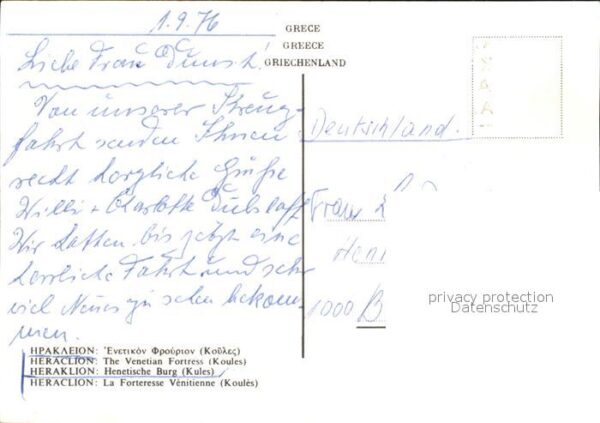 1.9.76
Liebe Frau Dunst!
Von unserer Kreuz-
fahrt senden Ihnen
recht herzliche Grüße
Willi + Charlotte
Wir hatten bis jetzt eine
herrliche Fahrt und sehr
viel Neues zu sehen bekom-
men.
GRECE
GREECE
GRIECHENLAND
Deutschland.
Frau
1000 B
privacy protection
Datenschutz
ΗΡΑΚΛΕΙΟΝ: Ἐνετικὸν Φρούριον (Κοῦλες)
HERACLION: The Venetian Fortress (Koules)
HERAKLION: Henetische Burg (Kules)
HERACLION: La Forteresse Vénitienne (Koulès)